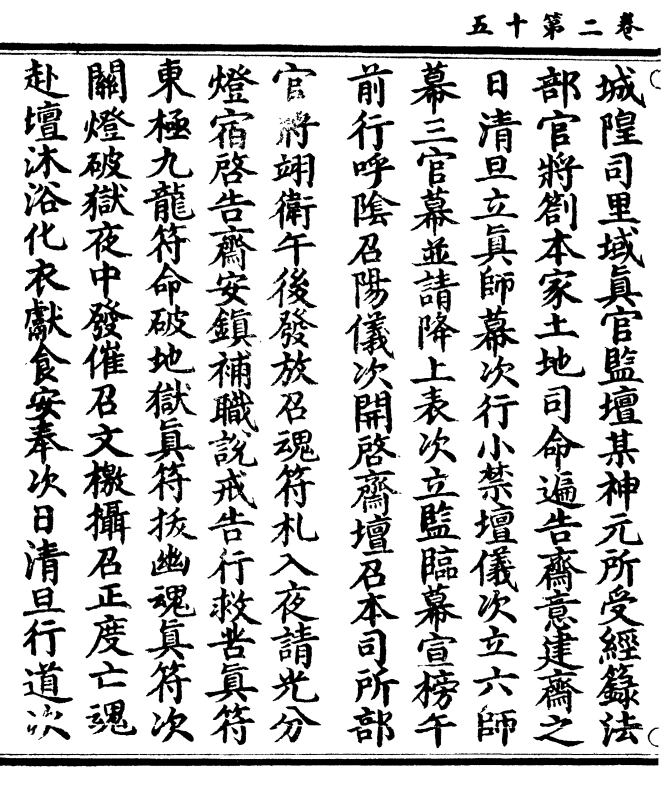 卷二第十五
城隍司里域眞官監壇某神元所受經籙法
部官將劄本家土地司命遍告齋意建齋之
日清旦立眞師幕次行小禁壇儀次立六師
幕三官幕並請降上表次立監臨幕宣榜午
前行呼陰召陽儀次開啓齋壇召本司所部
官將翊衛午後發放召魂符札入夜請光分
燈宿啓告齋安鎮補職說戒告行救苦眞符
東極九龍符命破地獄眞符拔幽魂眞符次
關燈破獄夜中發催召文檄攝召正度亡魂
赴壇沐浴化衣獻食安奉次日清旦行道次